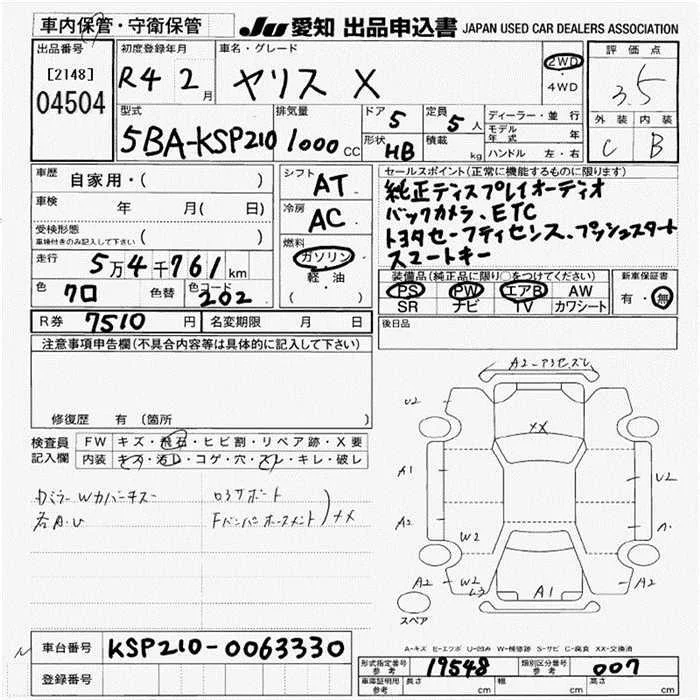 車内保管・守衛保管
JU 愛知 出品申込書 JAPAN USED CAR DEALERS ASSOCIATION
出品番号
[2148]
04504
初度登録年月
R4 2月
車名・グレード
ヤリス X
2WD
・
4WD
評価点
3.5
外装 内装
C B
型式
5BA-KSP210
排気量
1000CC
ドア 5
形状 HB
定員 5人
積載 kg
ディーラー・並行
モデル年式 年
ハンドル 左・右
車歴 自家用・( )
車検 年 月( 日)
受検形態
車検付きのみ記入して下さい ( )
走行 5万4千761km
色 クロ 色替 色コード 202
シフト AT
冷房 AC
燃料
ガソリン
軽・油
( )
セールスポイント(正常に機能するものに限ります)
純正ディスプレイオーディオ
バックカメラ、ETC
トヨタセーフティセンス、プッシュスタート
スマートキー
装備品(純正品に限り○をつけてください)
PS PW エアB AW
SR ナビ TV カワシート
新車保証書
有・無
R券 7510円 名変期限 月 日
後日品
注意事項申告欄(不具合内容等は具体的に記入して下さい)
修復歴 有 〔箇所
検査員記入欄
FW キズ・飛石・ヒビ割・リペア跡・X要
内装 キズ・汚レ・コゲ・穴・スレ・キレ・破レ
ロアサポート
XX
A2
U2
XX
A1
U2
A2
A
W2
A2
W2
A1
A2
スペア
A-キズ E-エクボ U-凹み W-補修跡 S-サビ C-腐食 XX-交換済
車台番号 KSP210-0063330
登録番号
形式指定番号 参考 19548 類別区分番号 参考 007
車庫証明用 参考 長さ cm 幅 cm 高さ cm